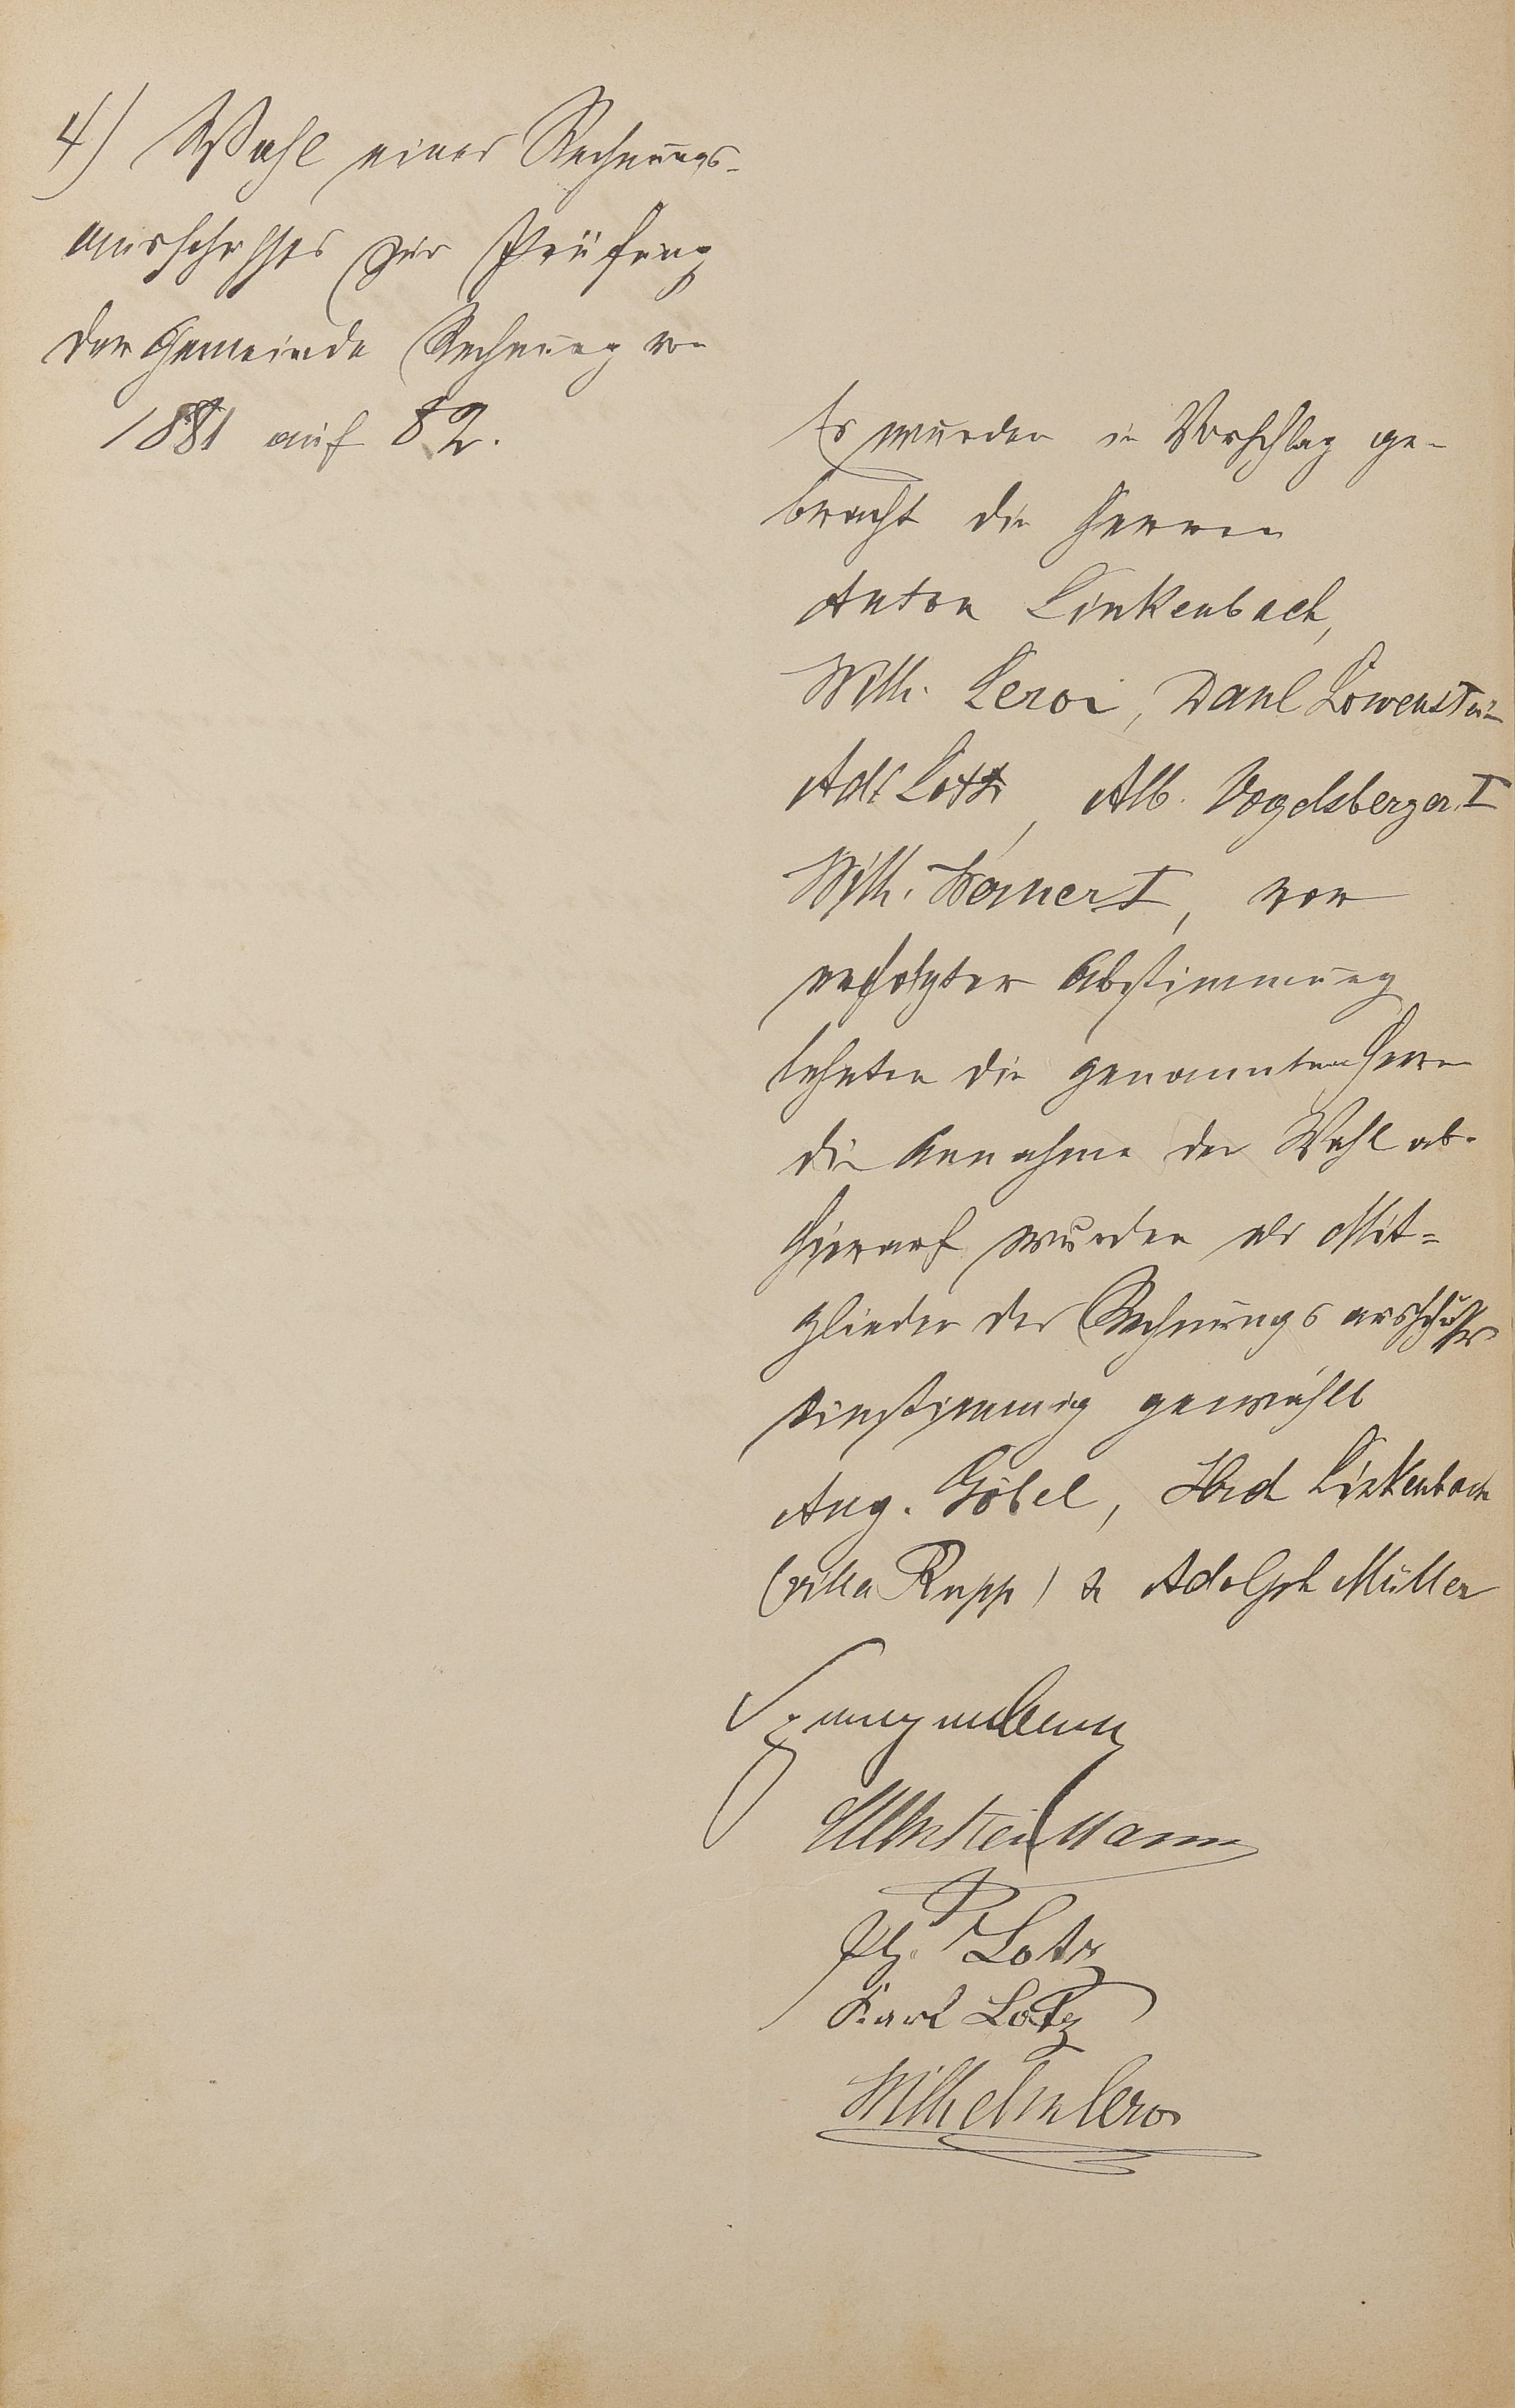 4) Wahl eines Rechnungs-
ausschusses zur Prüfung
der Gemeinde Rechnung von
1881 auf 82.
Es wurden in Vorschlag ge-
bracht die Herren
Anton Linkenbach,
Wilh. Leroi, Danl Löwenstein
Ad. Lotz, Alb. Vogelsberger I
Wilh. I, vor
erfolgter Abstimmung
lehnten die genannten Herrn
die Annahme der Wahl ab.
Hierauf wurden als Mit=
glieder des Rechnungsausschusses
einstimmig gewählt
Aug. Göbel, Linkenbach
(villa Rupp) & Adolph Müller
Ph. Lotz
Karl Lotz
Wilhelm Leroi